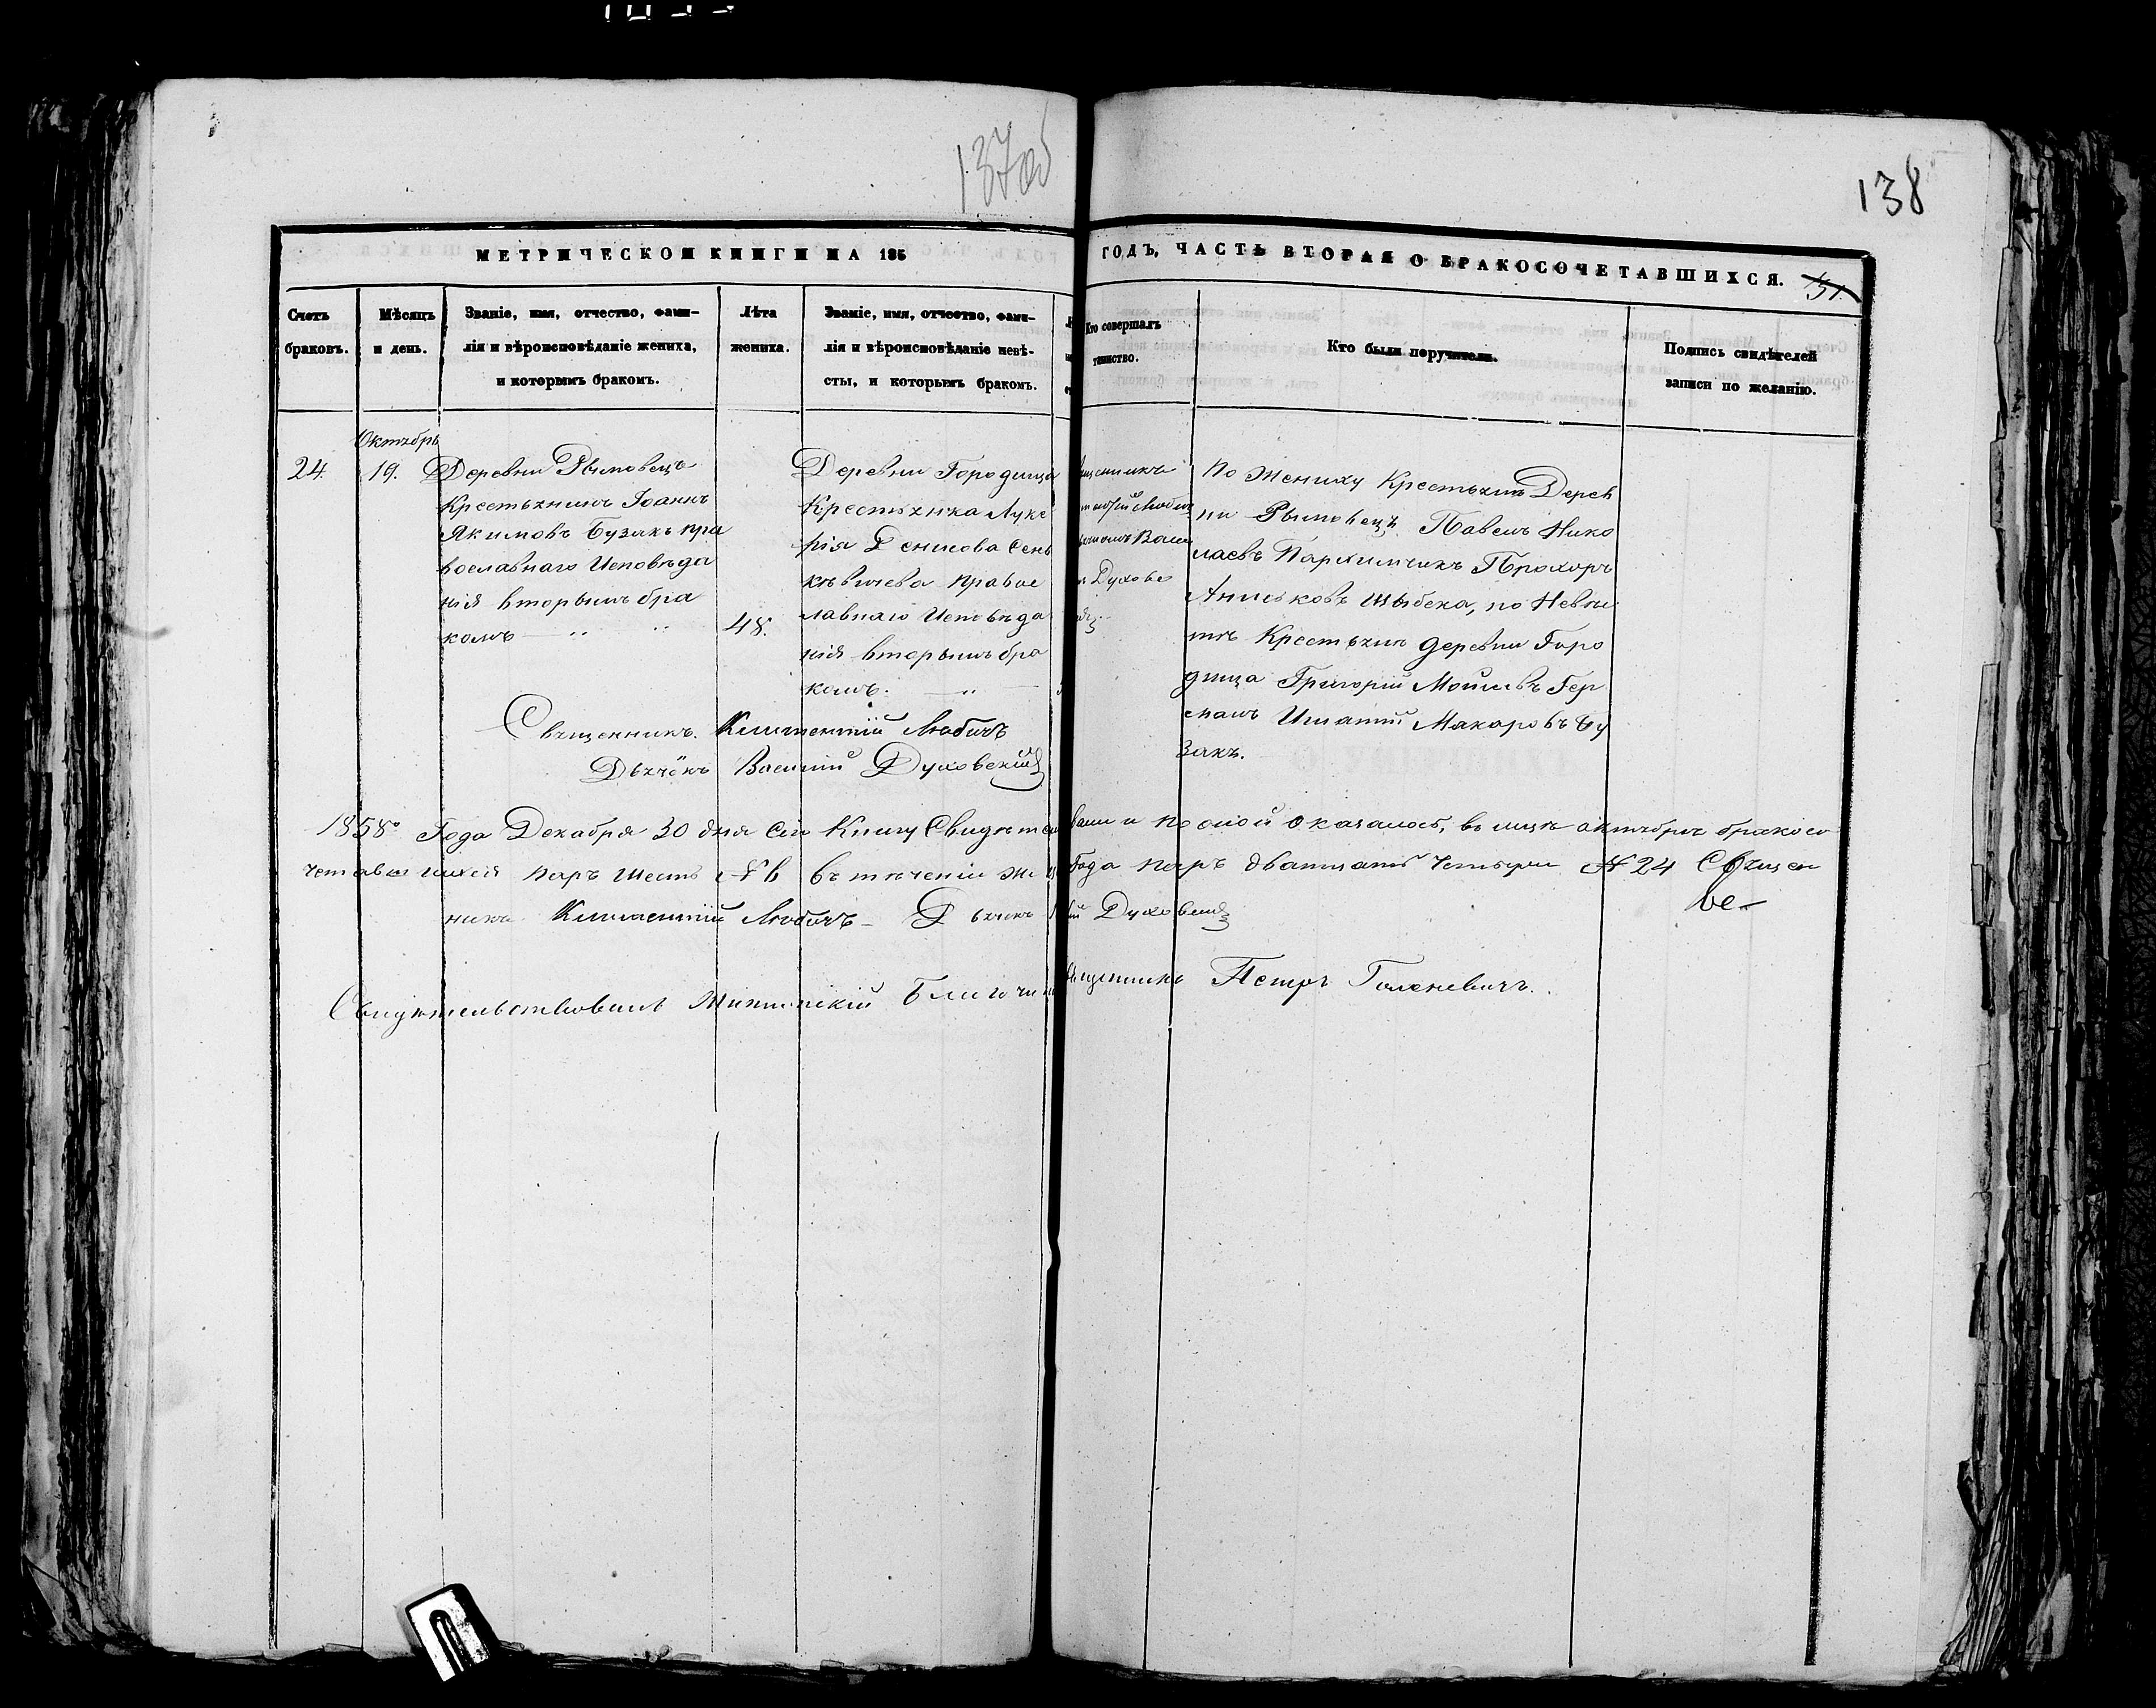 137об
138
МЕТРИЧЕСКОЙ КНИГИ НА 185
ГОДЪ, ЧАСТЬ ВТОРАЯ О БРАКОСОЧЕТАВШИХСЯ.
151.
Счетъ
браковъ.
Мѣсяцъ
и день.
Званіе, имя, отчество, фами-
лія и вѣроисповѣданіе жениха,
и которымъ бракомъ.
Лѣта
жениха.
Званіе, имя, отчество, фами-
лія и вѣроисповѣданіе невѣ-
сты, и которымъ бракомъ.
Кто совершалъ
таинство.
Кто были поручители.
Подпись свидѣтелей
записи по желанію.
Октябрь
24.
19.
Деревни Рымовецъ
Крестьянинъ Іоаннъ
Якимовъ Бузакъ пра
вославнаго Исповѣда
нія вторымъ бра
комъ
48.
Деревни Городища
Крестьянка Луке
рія Денисова Сень
кѣвичева правос
лавнаго Исповѣда
нія вторымъ бра
комъ.
Духовс
по Жениху Крестьянъ Дерев
ни Рымовецъ Павелъ Нико
лаевъ Пархимчикъ Прохоръ
Аниськовъ Шыбека, по Невѣс
тѣ Крестьянъ деревни Горо
дища Григорій Моисѣевъ Гер
манъ Игнатій Макаровъ Бу
закъ.
Священникъ. Климентій Любичъ
Дьячёкъ Василій Духовскій
1858го Года Декабря 30 дня Сію Книгу Свидѣтел
вали и по оной оказалось, въ мцѣ октябрѣ бракосо
четавшихся паръ шесть № 6 въ теченіи же
года паръ дватцать четыри № 24 Священ
никъ Климентій Любичъ Дьячкъ
ій Духовскій
Свидѣтельствовалъ Благочин
Священникъ Петръ Голеневичъ.